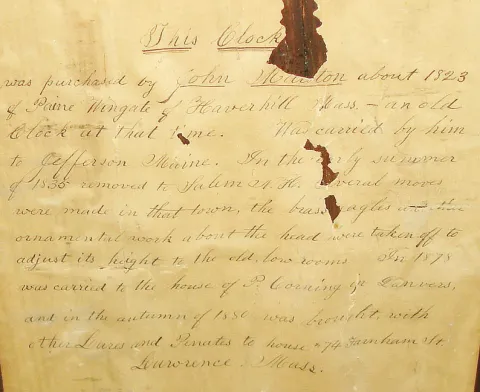 This Clock
was purchased by John Marston about 1823
of Paine Wingate of Haverhill Mass. - an old
Clock at that time. Was carried by him
to Jefferson Maine. In the early summer
of 1835 removed to Salem N. H. several moves
were made in that town, the brass eagles
ornamental work about the head were taken off to
adjust its height to the old, low rooms In 1878
was carried to the house of P. Corning in Danvers,
and in the autumn of 1880 was brought, with
other Lares and Penates to house 74 Farnham St.
Lawrence Mass.